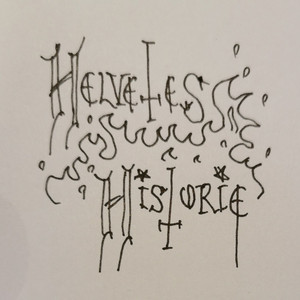 Helvetes
Historie